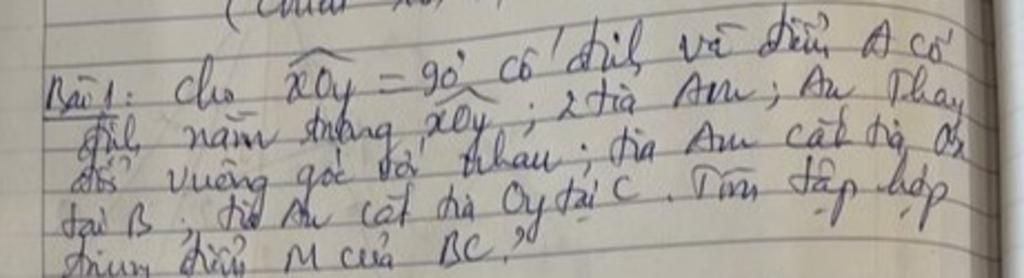 Bài 1: Cho xOy = 90° cố định và điểm A cố
định nằm trong xOy ; 2 tia Am ; An Thay
đổi vuông góc với nhau ; tia Am cắt tia Ox
tại B ; tia An cắt tia Oy tại C. Tìm tập hợp
trung điểm M của BC ?